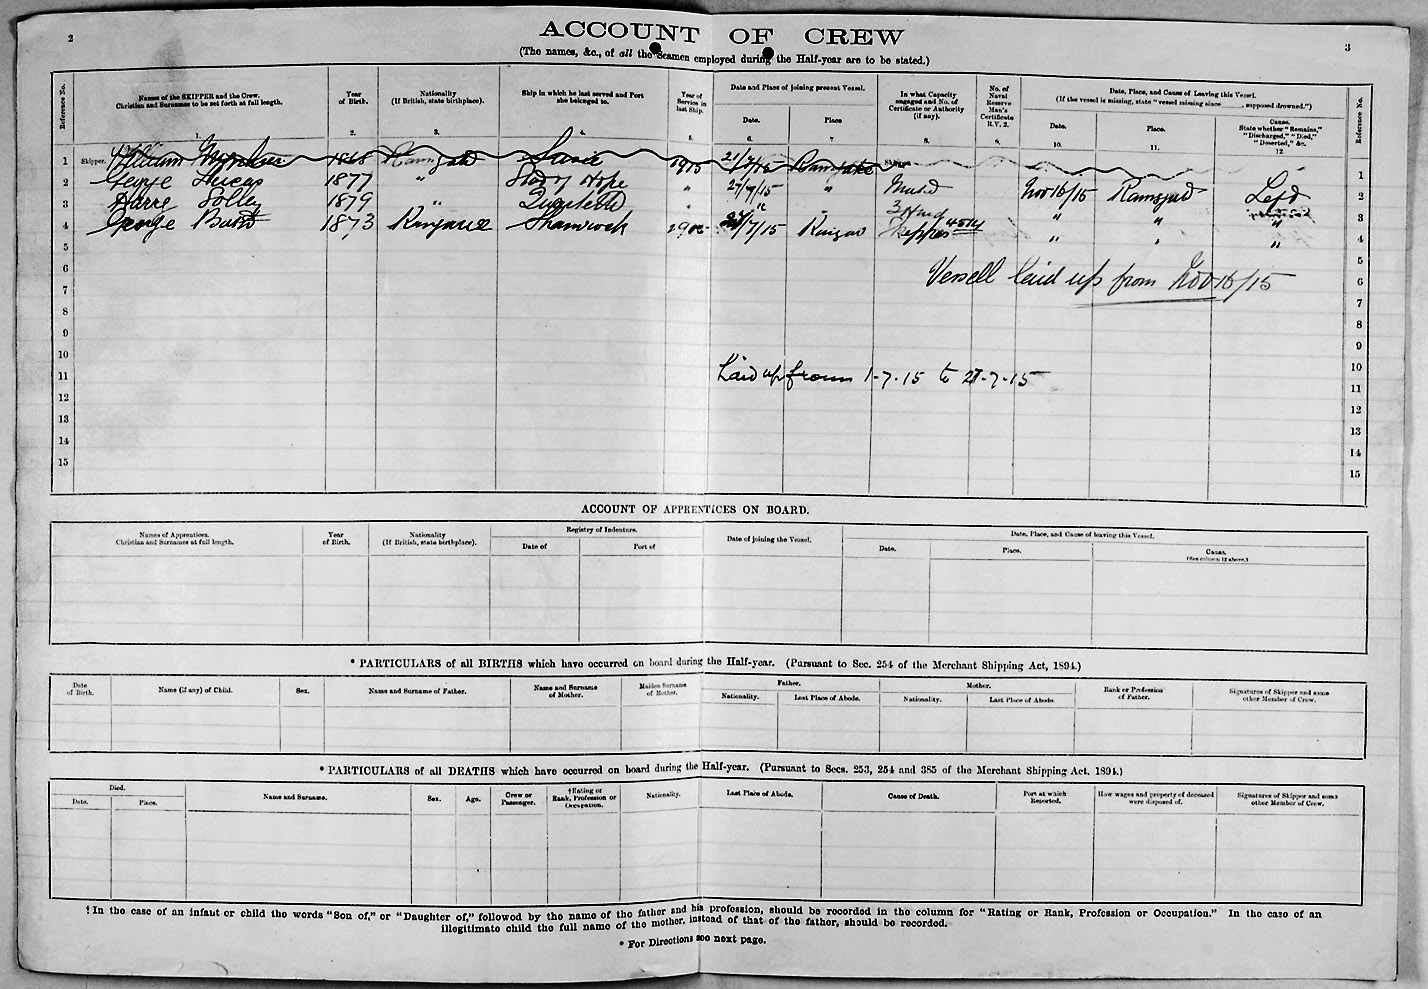 2
ACCOUNT OF CREW
3
(The names, &c., of all the Seamen employed during the Half-year are to be stated.)
Reference No.
Names of the SKIPPER and the Crew. Christian and Surnames to be set forth at full length. 1.
Year of Birth. 2.
Nationality (If British, state birthplace). 3.
Ship in which he last served and Port she belonged to. 4.
Year of Service in last Ship. 5.
Date and Place of joining present Vessel.
Date. 6.
Place 7.
In what Capacity engaged and No. of Certificate or Authority (if any). 8.
No. of Naval Reserve Man's Certificate R.V. 2. 9.
Date, Place, and Cause of Leaving this Vessel.
(If the vessel is missing, state "vessel missing since , supposed drowned.")
Date. 10.
Place. 11.
Cause. State whether "Remains," "Discharged," "Died," "Deserted," &c. 12
Reference No.
1 Skipper. William 1868 1915 21/7/15 Ramsgate Skipper 1
2 George Lucas 1877 " Star of Hope " 27/7/15 " Nov 16/15 Left 2
3 Harre Solley 1879 " " " " 3 Hand " " " 3
4 George 1873 Shamrock 27/7/15 " " " 4
5 5
6 Vessell laid up from Nov 16/15 6
7 7
8 8
9 9
10 10
11 Laid up from 1-7-15 to 21-7-15 11
12 12
13 13
14 14
15 15
ACCOUNT OF APPRENTICES ON BOARD.
Names of Apprentices. Christian and Surnames at full length.
Year of Birth.
Nationality (If British, state birthplace).
Registry of Indenture.
Date of
Port of
Date of joining the Vessel.
Date, Place, and Cause of leaving this Vessel.
Date.
Place.
Cause. (See column 12 above.)
* PARTICULARS of all BIRTHS which have occurred on board during the Half-year. (Pursuant to Sec. 254 of the Merchant Shipping Act, 1894.)
Date of Birth.
Name (if any) of Child.
Sex.
Name and Surname of Father.
Name and Surname of Mother.
Maiden Surname of Mother.
Father.
Nationality.
Last Place of Abode.
Mother.
Nationality.
Last Place of Abode.
Rank or Profession of Father.
Signatures of Skipper and some other Member of Crew.
* PARTICULARS of all DEATHS which have occurred on board during the Half-year. (Pursuant to Secs. 253, 254 and 385 of the Merchant Shipping Act, 1894.)
Died.
Date.
Place.
Name and Surname.
Sex.
Age.
Crew or Passenger.
†Rating or Rank, Profession or Occupation.
Nationality.
Last Place of Abode.
Cause of Death.
Port at which Reported.
How wages and property of deceased were disposed of.
Signatures of Skipper and some other Member of Crew.
† In the case of an infant or child the words "Son of," or "Daughter of," followed by the name of the father and his profession, should be recorded in the column for "Rating or Rank, Profession or Occupation." In the case of an
illegitimate child the full name of the mother, instead of that of the father, should be recorded.
* For Directions see next page.